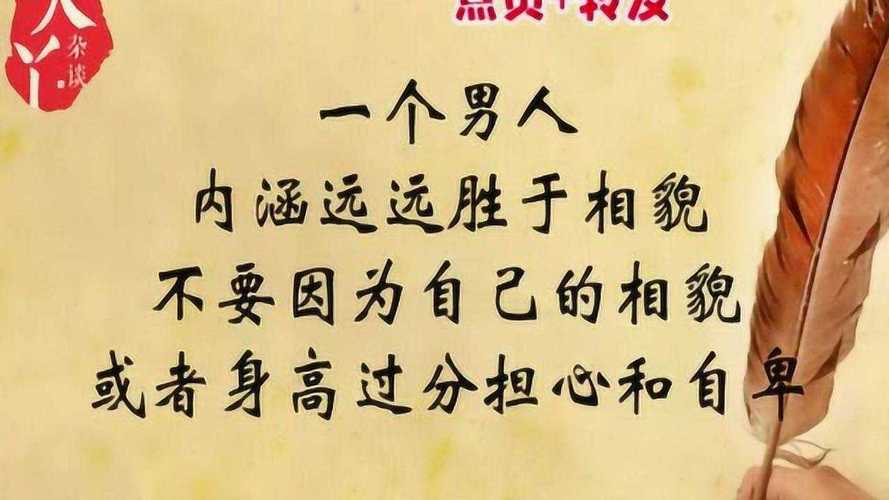 点赞+转发
大丫
杂谈
一个男人
内涵远远胜于相貌
不要因为自己的相貌
或者身高过分担心和自卑